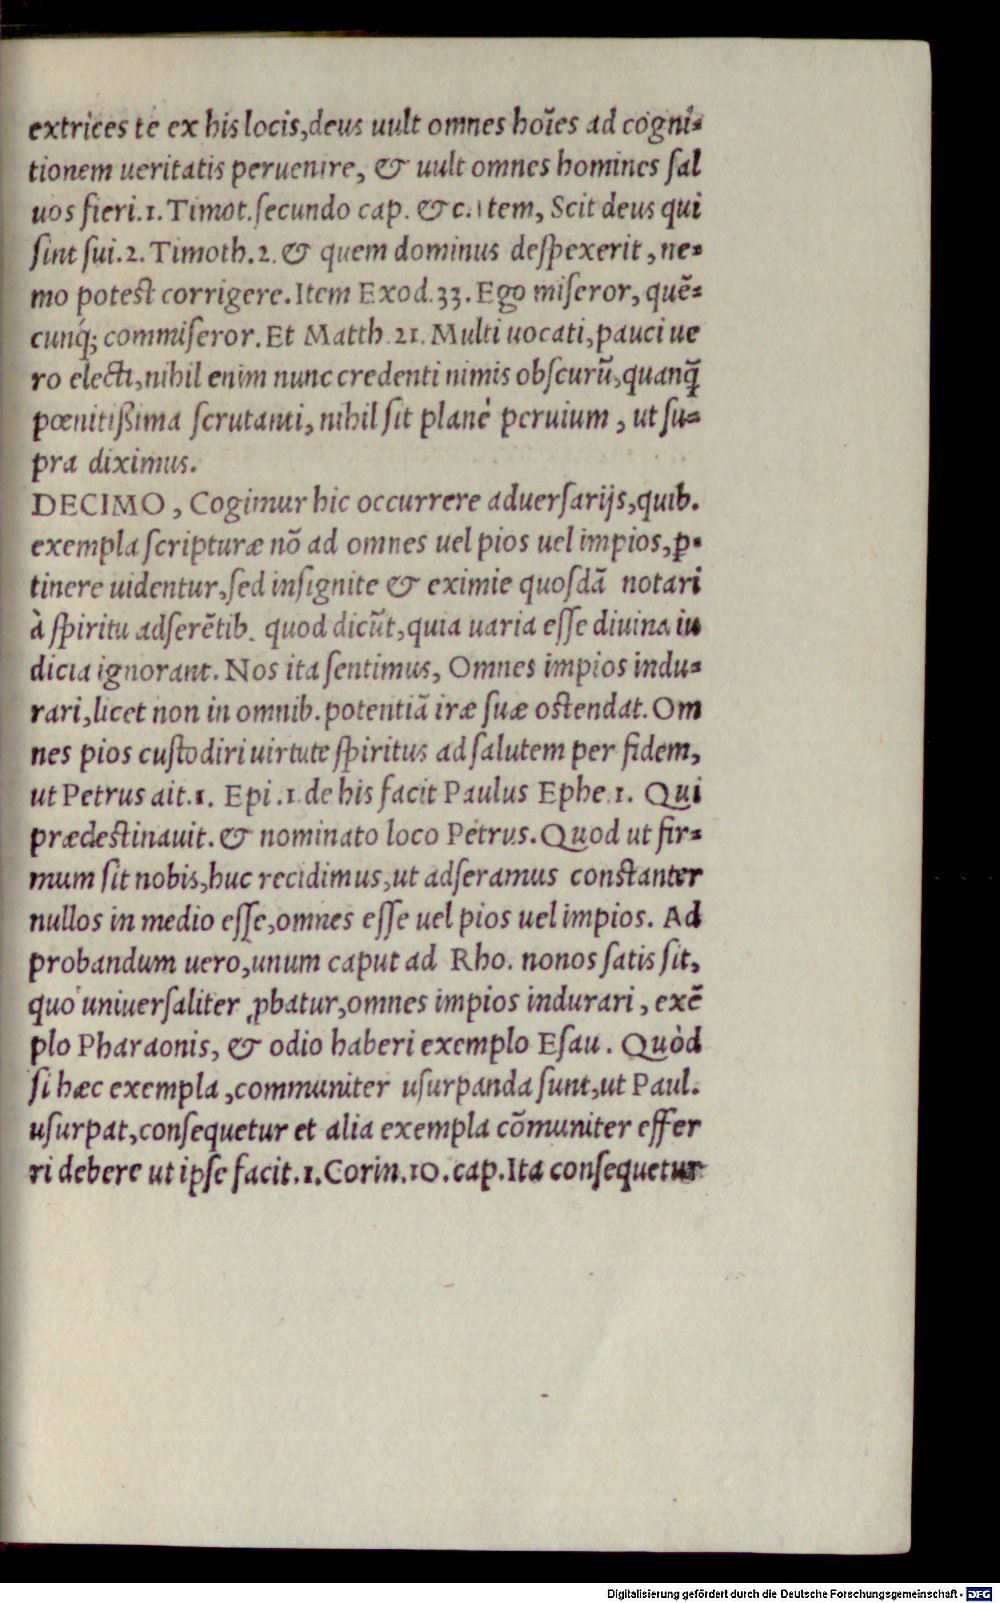 extrices te ex his locis,deus uult omnes hoĩes ad cogni-
tionem ueritatis peruenire, & uult omnes homines sal
uos fieri.1. Timot.secundo cap. &c. Item, Scit deus qui
sint sui.2. Timoth.2. & quem dominus despexerit, ne-
mo potest corrigere. Item Exod.33. Ego miseror, quẽ-
cunq; commiseror. Et Matth.21. Multi uocati, pauci ue
ro electi,nihil enim nunc credenti nimis obscurũ,quanq̃
pœnitißima scrutanti, nihil sit planè peruium, ut su-
pra diximus.
DECIMO, Cogimur hic occurrere aduersarijs,quib.
exempla scripturæ nõ ad omnes uel pios uel impios,ꝑ-
tinere uidentur,sed insignite & eximie quosdã notari
à spiritu adserẽtib. quod dicũt,quia uaria esse diuina iu
dicia ignorant. Nos ita sentimus, Omnes impios indu-
rari,licet non in omnib.potentiã iræ suæ ostendat. Om
nes pios custodiri uirtute spiritus ad salutem per fidem,
ut Petrus ait.1. Epi.1. de his facit Paulus Ephe.1. Qui
prædestinauit. & nominato loco Petrus. Quod ut fir-
mum sit nobis,huc recidimus,ut adseramus constanter
nullos in medio esse,omnes esse uel pios uel impios. Ad
probandum uero,unum caput ad Rho. nonos satis sit,
quo uniuersaliter ꝓbatur,omnes impios indurari, exẽ
plo Pharaonis, & odio haberi exemplo Esau. Quòd
si hæc exempla, communiter usurpanda sunt,ut Paul.
usurpat,consequetur et alia exempla cõmuniter effer
ri debere ut ipse facit.1. Corin.10. cap. Ita consequetur
Digitalisierung gefördert durch die Deutsche Forschungsgemeinschaft - DFG